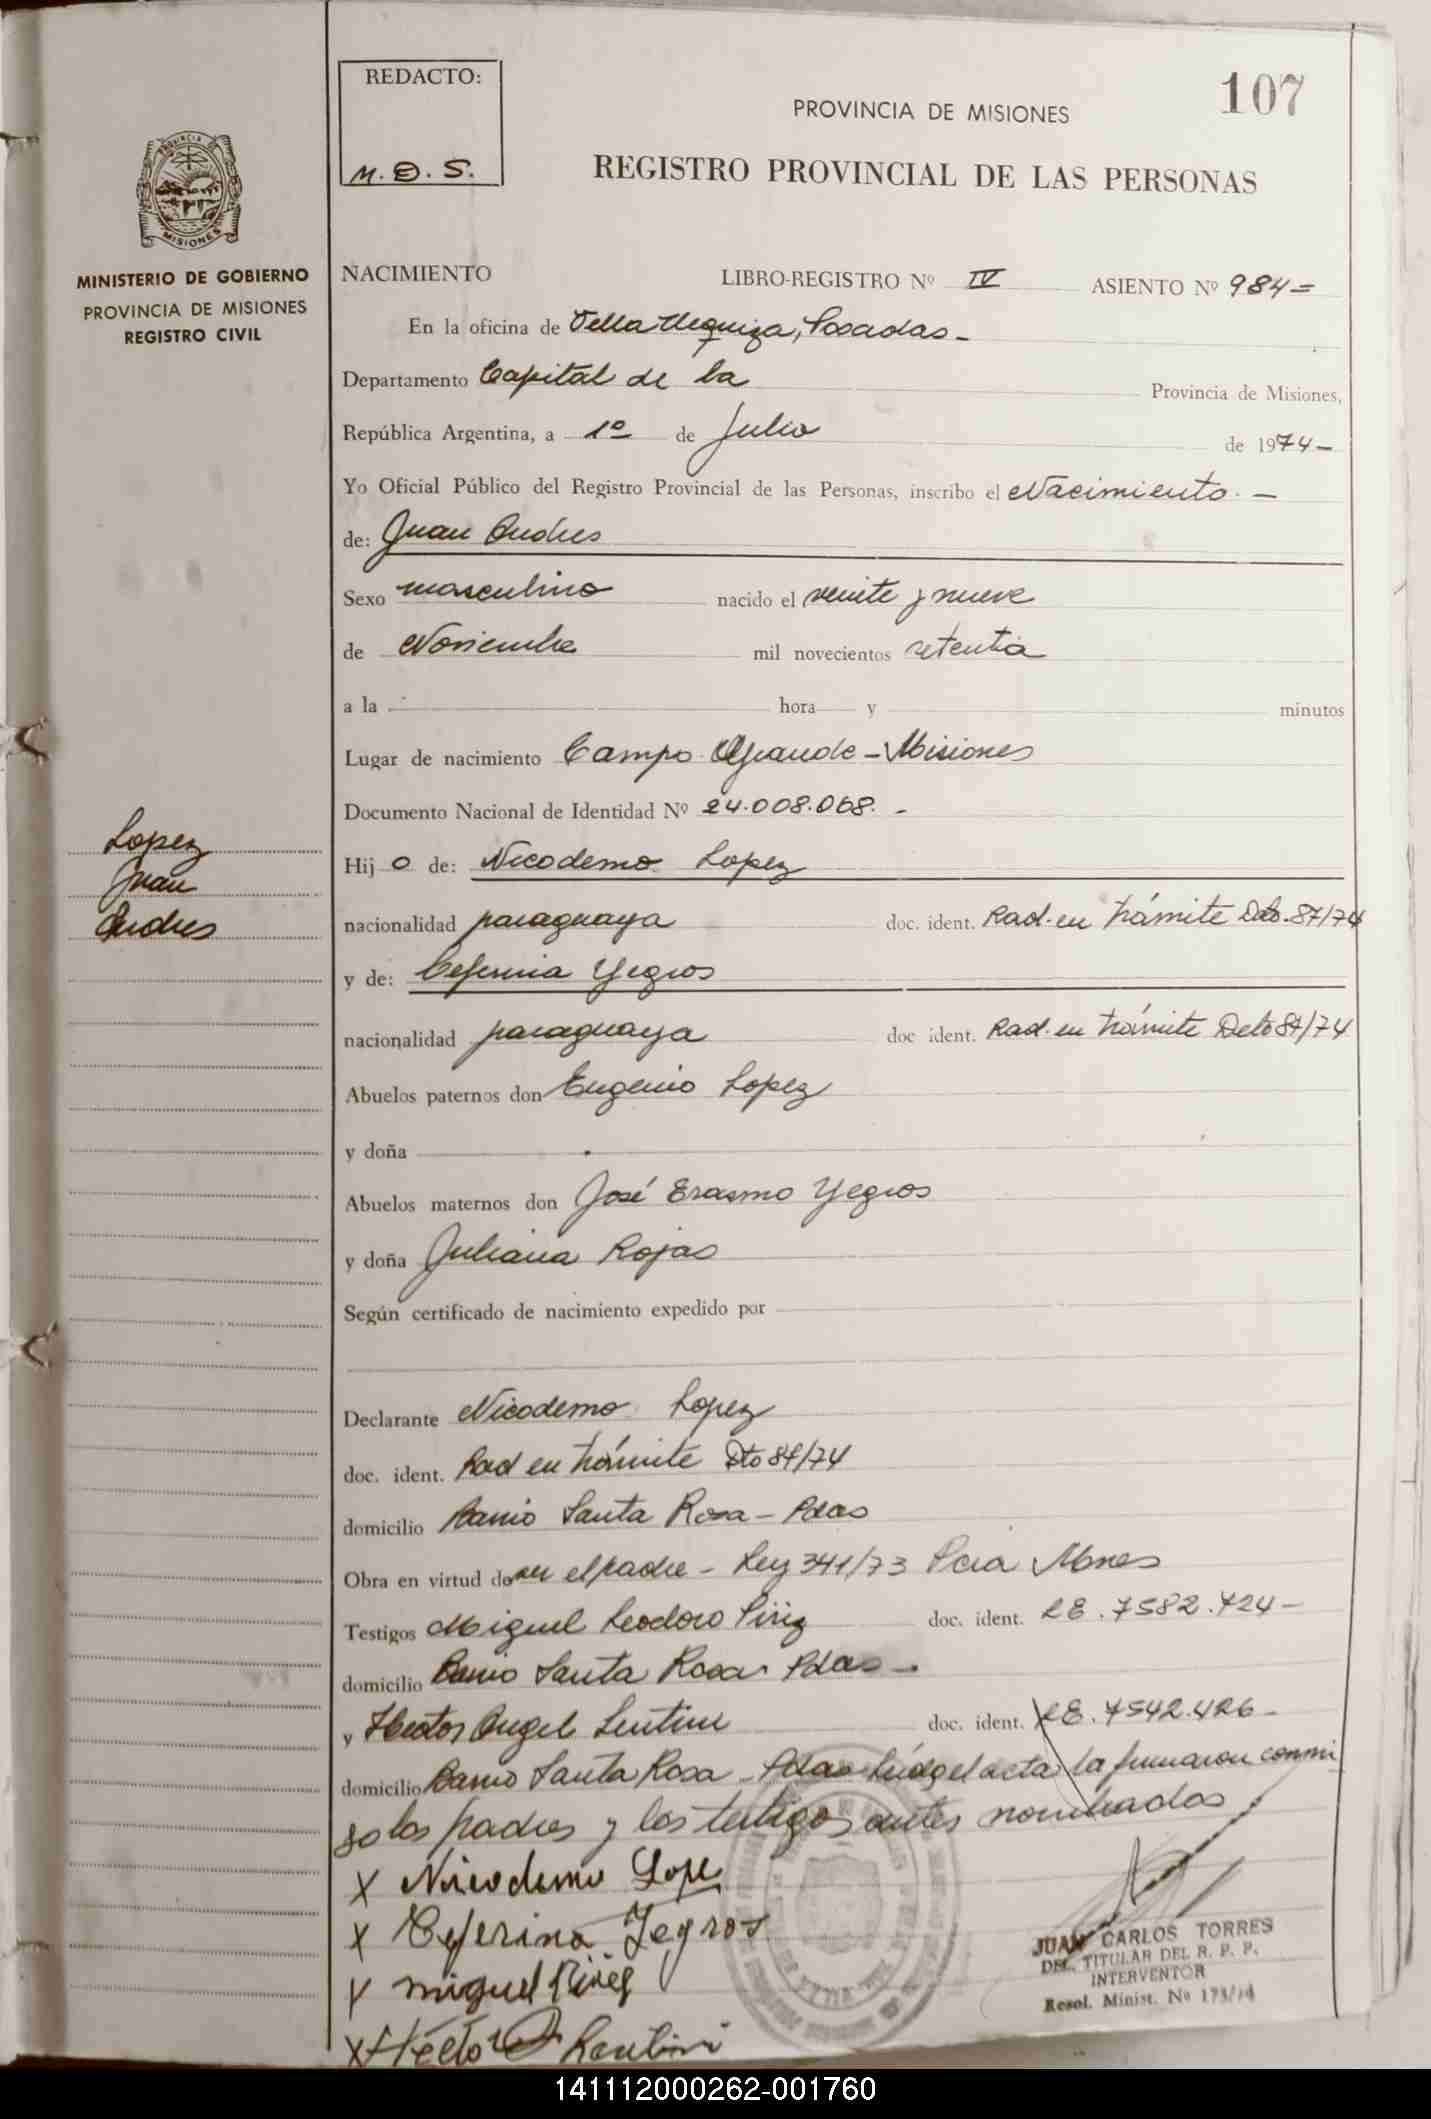 REDACTO:
M. D. S.
107
PROVINCIA DE MISIONES
REGISTRO PROVINCIAL DE LAS PERSONAS
PROVINCIA DE
MISIONES
MINISTERIO DE GOBIERNO
PROVINCIA DE MISIONES
REGISTRO CIVIL
NACIMIENTO LIBRO-REGISTRO Nº IV ASIENTO Nº 984=
En la oficina de Villa Urquiza, Posadas-
Departamento Capital de la Provincia de Misiones,
República Argentina, a 1º de Julio de 1974-
Yo Oficial Público del Registro Provincial de las Personas, inscribo el Nacimiento.-
de: Juan Andres
Sexo masculino nacido el veinte y nueve
de Noviembre mil novecientos setenta
a la hora y minutos
Lugar de nacimiento Campo Grande - Misiones
Documento Nacional de Identidad Nº 24.008.068.-
Hij o de: Nicodemo Lopez
Lopez
Juan
Andres
nacionalidad paraguaya doc. ident. Rad. en trámite Dto. 87/74
y de: Ceferina Yegros
nacionalidad paraguaya doc ident. Rad. en trámite Dcto 87/74
Abuelos paternos don Eugenio Lopez
y doña
Abuelos maternos don José Erasmo Yegros
y doña Juliana Rojas
Según certificado de nacimiento expedido por
Declarante Nicodemo Lopez
doc. ident. Rad en trámite Dto 87/74
domicilio Barrio Santa Rosa - Pdas
Obra en virtud de ser el padre - Ley 341/73 Pcia Mnes
Testigos Miguel Teodoro Piriz doc. ident. LE. 7582.724-
domicilio Barrio Santa Rosa. Pdas-
y Hector Angel Lentini doc. ident. LE. 7542.426-
domicilio Barrio Santa Rosa - Pdas Leída el acta la firmaron conmi
go los padres y los testigos antes nombrados
X Nicodemo Lope
X Ceferina Yegros
X Miguel Piriz
X Hector Lentini
JUAN CARLOS TORRES
DEL. TITULAR DEL R. P. P.
INTERVENTOR
Resol. Minist. Nº 173/74
141112000262-001760